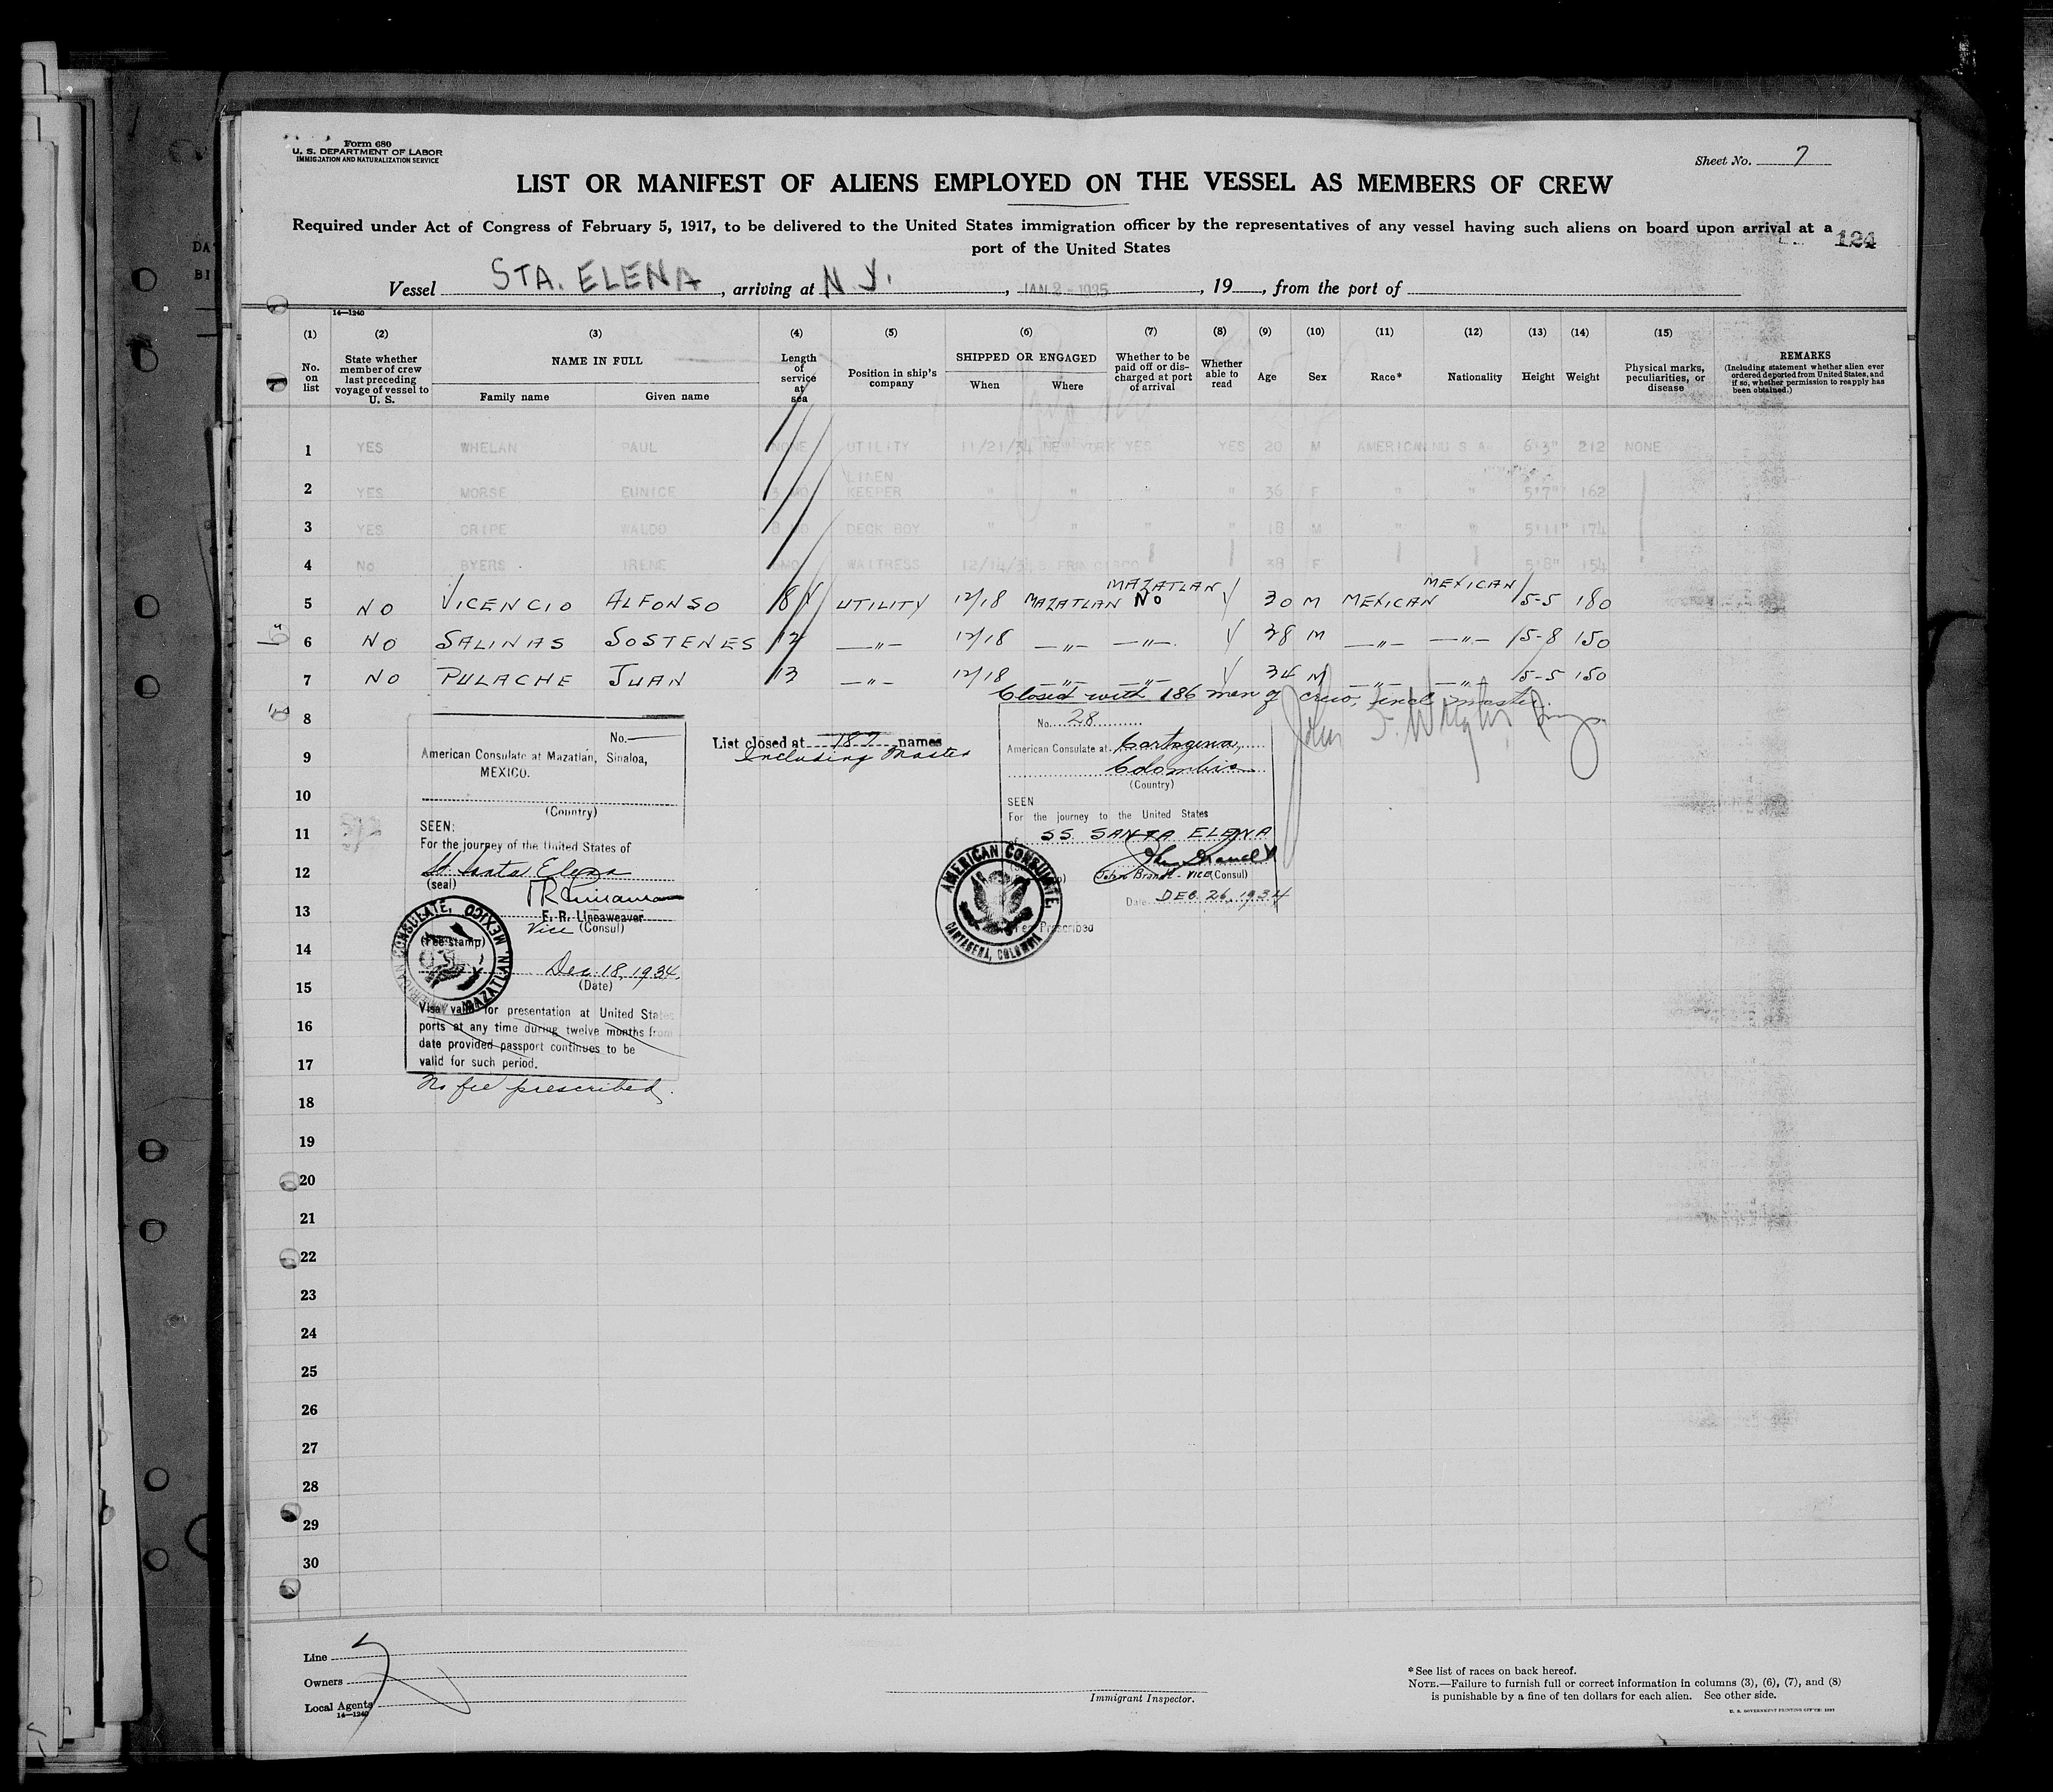 Form 680
U. S. DEPARTMENT OF LABOR
IMMIGRATION AND NATURALIZATION SERVICE
Sheet No. 7
LIST OR MANIFEST OF ALIENS EMPLOYED ON THE VESSEL AS MEMBERS OF CREW
Required under Act of Congress of February 5, 1917, to be delivered to the United States immigration officer by the representatives of any vessel having such aliens on board upon arrival at a
port of the United States
124
Vessel STA. ELENA, arriving at N.Y., JAN 2 - 1935, 19, from the port of
14—1240
(1) (2) (3) (4) (5) (6) (7) (8) (9) (10) (11) (12) (13) (14) (15)
No. on list
State whether member of crew last preceding voyage of vessel to U. S.
NAME IN FULL
Family name
Given name
Length of service at sea
Position in ship's company
SHIPPED OR ENGAGED
When
Where
Whether to be paid off or discharged at port of arrival
Whether able to read
Age
Sex
Race*
Nationality
Height
Weight
Physical marks, peculiarities, or disease
REMARKS
(Including statement whether alien ever ordered deported from United States, and if so, whether permission to reapply has been obtained.)
1 YES WHELAN PAUL NONE UTILITY 11/21/34 NEW YORK YES YES 20 M AMERICAN U S A 6'3" 212 NONE
2 YES MORSE EUNICE 3 MO LINEN KEEPER " " " " 36 F " " 5'7" 162
3 YES CRIPE WALDO 8 MO DECK BOY " " " " 18 M " " 5'11" 174
4 No BYERS IRENE 6MO WAITRESS 12/14/34 S. FRANCISCO 38 F 5'8" 154
MAZATLAN MEXICAN
5 NO VICENCIO ALFONSO 8 UTILITY 12/18 MAZATLAN No Y 30 M MEXICAN 5-5 180
6 NO SALINAS SOSTENES 12 —"— 12/18 —"— —"— Y 28 M —"— —"— 5-8 150
7 NO PULACHE JUAN 13 —"— 12/18 —"— —"— Y 34 M —"— —"— 5-5 150
Closed with 186 men of crew, incl master.
8
9
10
11
12
13
14
15
16
17
18
19
20
21
22
23
24
25
26
27
28
29
30
No. —
American Consulate at Mazatlán, Sinaloa,
MEXICO.
(Country)
SEEN:
For the journey of the United States of
SS Santa Elena
(seal)
E. R. Lineaweaver
Vice (Consul)
(Fee stamp)
AMERICAN CONSULATE, MAZATLAN, MEXICO
Dec. 18, 1934.
(Date)
Visa valid for presentation at United States
ports at any time during twelve months from
date provided passport continues to be
valid for such period.
No fee prescribed.
List closed at 187 names
Including Master
No. 28
American Consulate at Cartagena,
Colombia
(Country)
SEEN
For the journey to the United States
SS. SANTA ELENA
John Brandt
John Brandt - Vice (Consul)
Date DEC 26, 1934
AMERICAN CONSULATE, CARTAGENA, COLOMBIA
Fee Prescribed
Line
Owners
Local Agents
14—1240
Immigrant Inspector.
*See list of races on back hereof.
NOTE.—Failure to furnish full or correct information in columns (3), (6), (7), and (8)
is punishable by a fine of ten dollars for each alien. See other side.